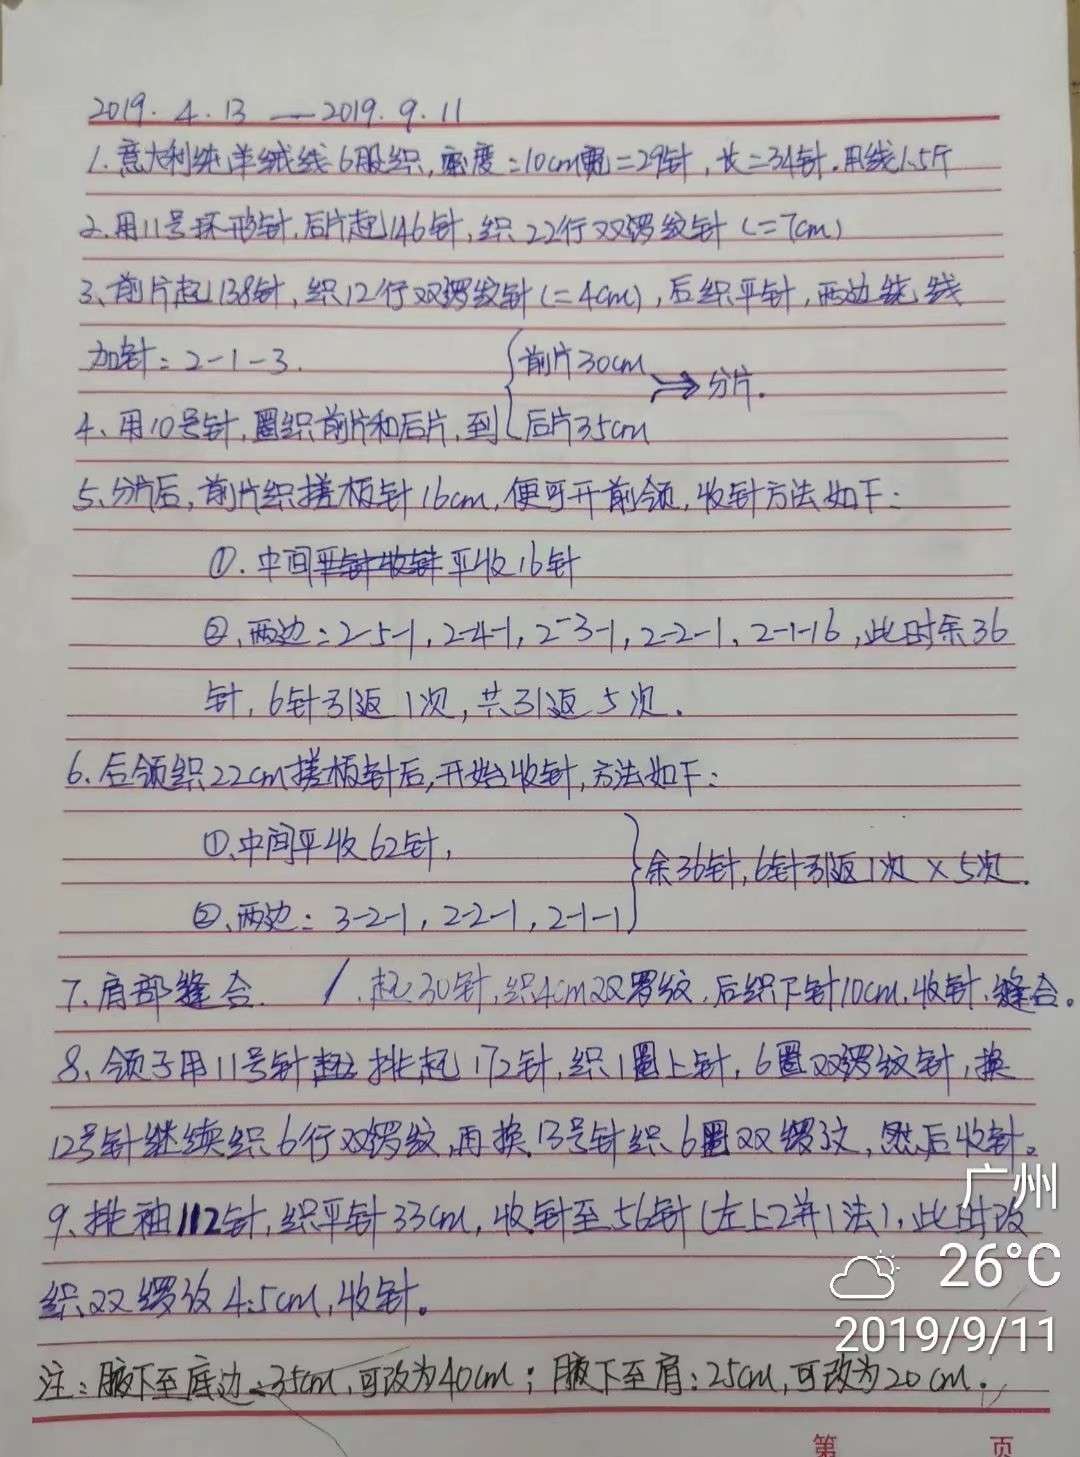 2019.4.13 — 2019.9.11
1.意大利纯羊绒线6股织,密度:10cm宽=29针,长=34针.用线1.5斤
2.用11号环形针,后片起146针,织22行双罗纹针(=7cm)
3、前片起138针,织12行双罗纹针(=4cm),后织平针,两边绕线
加针:2-1-3.
前片30cm
4、用10号针,圈织前片和后片,到 后片35cm ⇒分片.
5、分片后,前片织搓板针16cm,便可开前领,收针方法如下:
①.中间平收16针
②、两边:2-5-1,2-4-1,2-3-1,2-2-1,2-1-16,此时余36
针,6针引返1次,共引返5次.
6、后领织22cm搓板针后,开始收针,方法如下:
①、中间平收62针,
余36针,6针引返1次×5次.
②、两边:3-2-1,2-2-1,2-1-1
7、肩部缝合. /.起30针,织4cm双罗纹,后织下针10cm,收针,缝合。
8、领子用11号针挑起172针,织1圈上针,6圈双罗纹针,换
12号针继续织6行双罗纹,再换13号针织6圈双罗纹,然后收针。
9、挑袖112针,织平针33cm,收针至56针(左上2并1法),此时改
织双罗纹4.5cm,收针。
注:腋下至底边:35cm,可改为40cm;腋下至肩:25cm,可改为20cm.
广州
26°C
2019/9/11
第 页